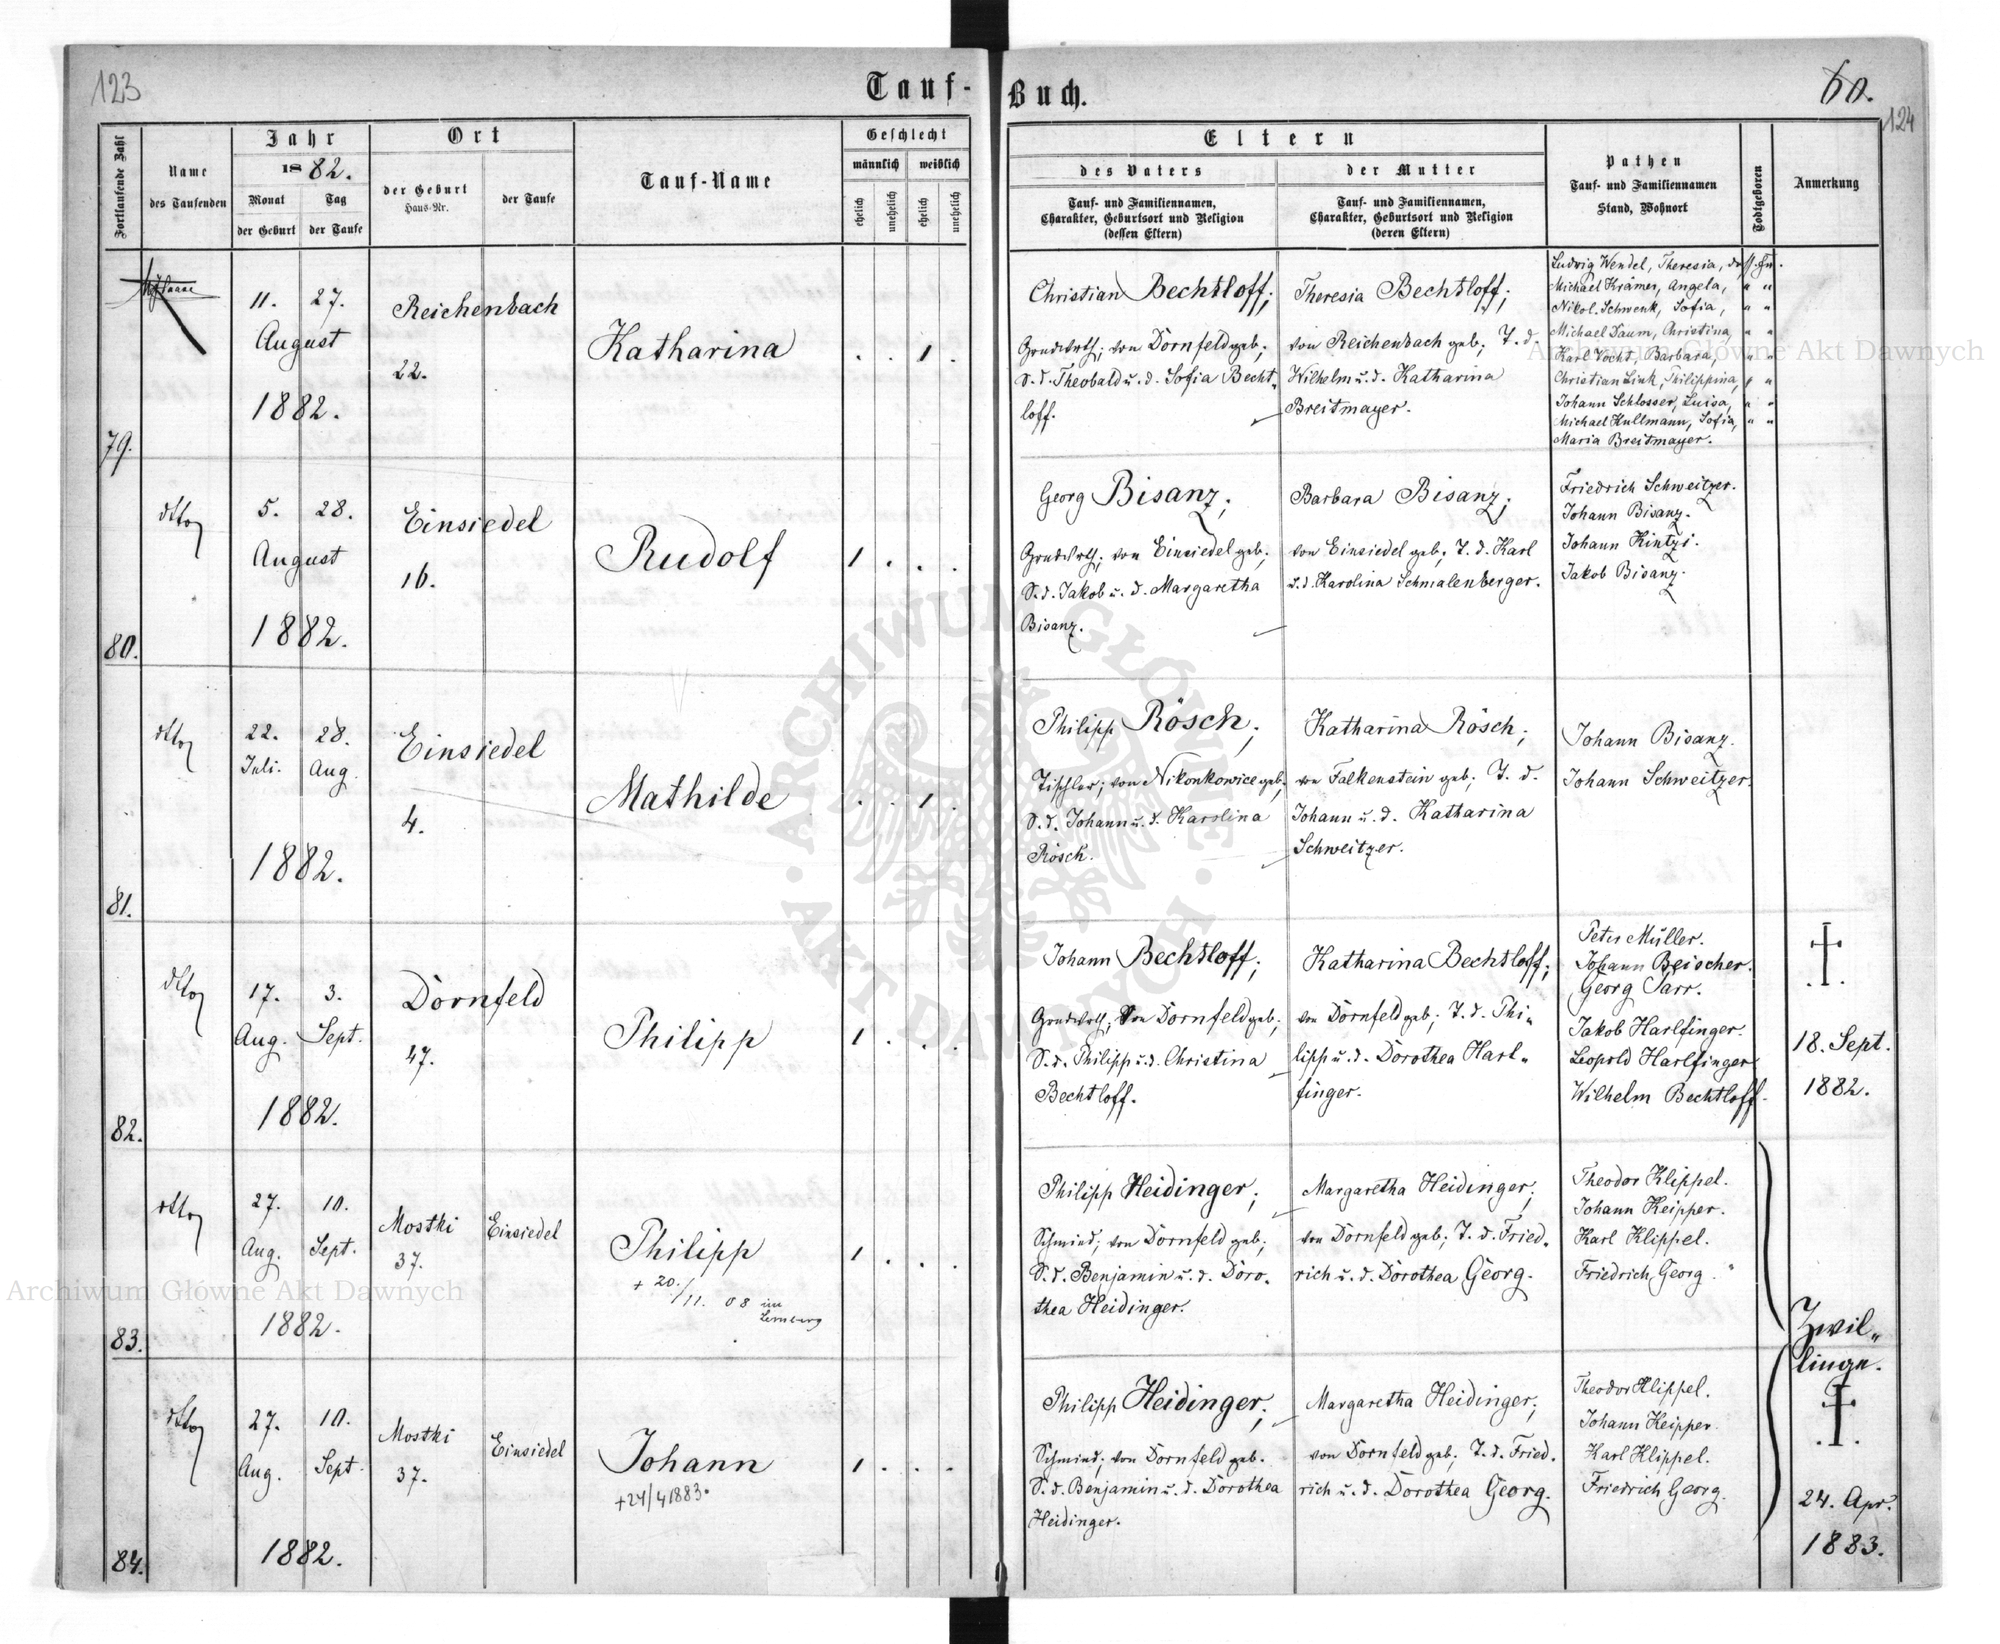 123
Tauf-
Buch.
60.
124
Fortlaufende Zahl
Name
des Taufenden
Jahr
1882.
Monat
der Geburt
Tag
der Taufe
Ort
der Geburt
Haus-Nr.
der Taufe
Tauf-Name
Geschlecht
männlich
weiblich
ehelich
unehelich
ehelich
unehelich
Eltern
des Vaters
Tauf- und Familiennamen,
Charakter, Geburtsort und Religion
(dessen Eltern)
der Mutter
Tauf- und Familiennamen,
Charakter, Geburtsort und Religion
(deren Eltern)
Pathen
Tauf- und Familiennamen
Stand, Wohnort
Todtgeboren
Anmerkung
79.
11. 27.
August
1882.
Reichenbach
22.
Katharina
. . 1 .
Christian Bechtloff;
Grundwrth; von Dornfeld geb;
S. d. Theobald u. d. Sofia Becht-
loff.
Theresia Bechtloff;
von Reichenbach geb; T. d.
Wilhelm u. d. Katharina
Breitmayer.
Ludwig Wendel, Theresia,
Michael Krämer, Angela, " "
Nikol. Schwenk, Sofia, " "
Michael Daum, Christina, " "
Karl Vocht, Barbara, " "
Christian Link, Philippina, " "
Johann Schlosser, Luisa, " "
Michael Kullmann, Sofia, " "
Maria Breitmayer.
80.
dtto
5. 28.
August
1882.
Einsiedel
16.
Rudolf
1 . . .
Georg Bisanz;
Grundwrth; von Einsiedel geb;
S. d. Jakob u. d. Margaretha
Bisanz.
Barbara Bisanz;
von Einsiedel geb; T. d. Karl
u. d. Karolina Schmalenberger.
Friedrich Schweitzer.
Johann Bisanz.
Johann Kintzi.
Jakob Bisanz.
81.
dtto
22. 28.
Juli. Aug.
1882.
Einsiedel
4.
Mathilde
. . 1 .
Philipp Rösch;
Tischler; von Nikonkowice geb;
S. d. Johann u. d. Karolina
Rösch.
Katharina Rösch;
von Falkenstein geb; T. d.
Johann u. d. Katharina
Schweitzer.
Johann Bisanz.
Johann Schweitzer.
82.
dtto
17. 3.
Aug. Sept.
1882.
Dornfeld
47.
Philipp
1 . . .
Johann Bechtloff;
Grundwrth; von Dornfeld geb;
S. d. Philipp u. d. Christina
Bechtloff.
Katharina Bechtloff;
von Dornfeld geb; T. d. Phi-
lipp u. d. Dorothea Harl-
finger.
Peter Müller.
Johann Beischer.
Georg Sarr.
Jakob Harlfinger.
Leopold Harlfinger
Wilhelm Bechtloff.
18. Sept.
1882.
83.
dtto
27. 10.
Aug. Sept.
1882.
Mostki
37.
Einsiedel
Philipp
+ 20./11. 08 in
Lemberg
1 . . .
Philipp Heidinger;
Schmied; von Dornfeld geb;
S. d. Benjamin u. d. Doro-
thea Heidinger.
Margaretha Heidinger;
von Dornfeld geb; T. d. Fried-
rich u. d. Dorothea Georg.
Theodor Klippel.
Johann Keipper.
Karl Klippel.
Friedrich Georg.
Zwil-
linge.
84.
dtto
27. 10.
Aug. Sept
1882.
Mostki
37.
Einsiedel
Johann
+24/4 1883.
1 . . .
Philipp Heidinger;
Schmied; von Dornfeld geb.
S. d. Benjamin u. d. Dorothea
Heidinger.
Margaretha Heidinger;
von Dornfeld geb; T. d. Fried-
rich u. d. Dorothea Georg.
Theodor Klippel.
Johann Keipper.
Karl Klippel.
Friedrich Georg.
24. Apr.
1883.
Archiwum Główne Akt Dawnych
Archiwum Główne Akt Dawnych
ARCHIWUM GŁÓWNE
AKT DAWNYCH